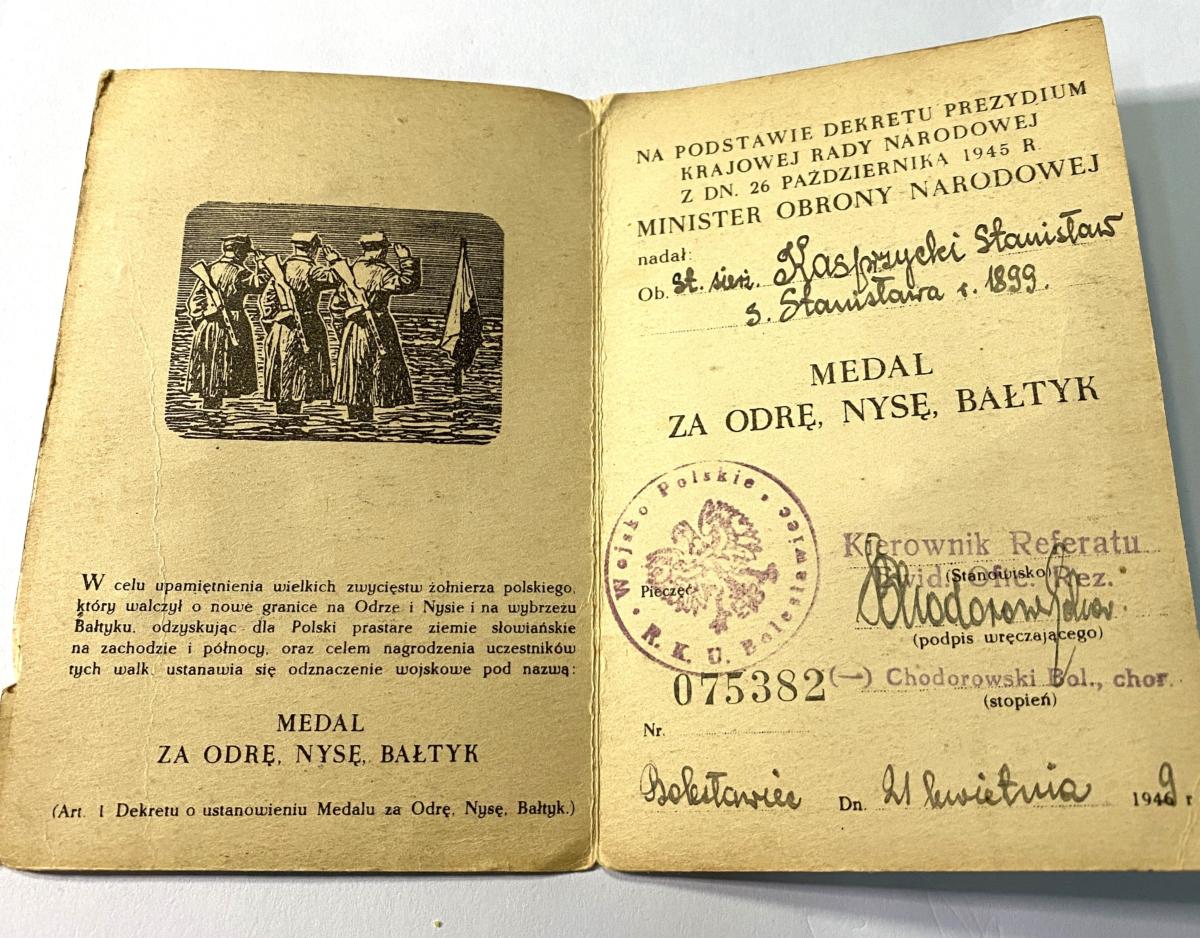 W celu upamiętnienia wielkich zwycięstw żołnierza polskiego,
który walczył o nowe granice na Odrze i Nysie i na wybrzeżu
Bałtyku, odzyskując dla Polski prastare ziemie słowiańskie
na zachodzie i północy, oraz celem nagrodzenia uczestników
tych walk, ustanawia się odznaczenie wojskowe pod nazwą:
MEDAL
ZA ODRĘ, NYSĘ, BAŁTYK
(Art. 1 Dekretu o ustanowieniu Medalu za Odrę, Nysę, Bałtyk.)
NA PODSTAWIE DEKRETU PREZYDIUM
KRAJOWEJ RADY NARODOWEJ
Z DN. 26 PAŹDZIERNIKA 1945 R.
MINISTER OBRONY NARODOWEJ
nadał:
Ob. St. sierż. Kasprzycki Stanisław
s. Stanisława r. 1899.
MEDAL
ZA ODRĘ, NYSĘ, BAŁTYK
Wojsko Polskie
R. K. U. Bolesławiec
Pieczęć
Kierownik Referatu
(Stanowisko)
Ewid. Ofic. Rez.
Chodorowski chor.
(podpis wręczającego)
075382
(—) Chodorowski Bol., chor.
(stopień)
Nr.
Bolesławiec Dn. 21 kwietnia 1949 r